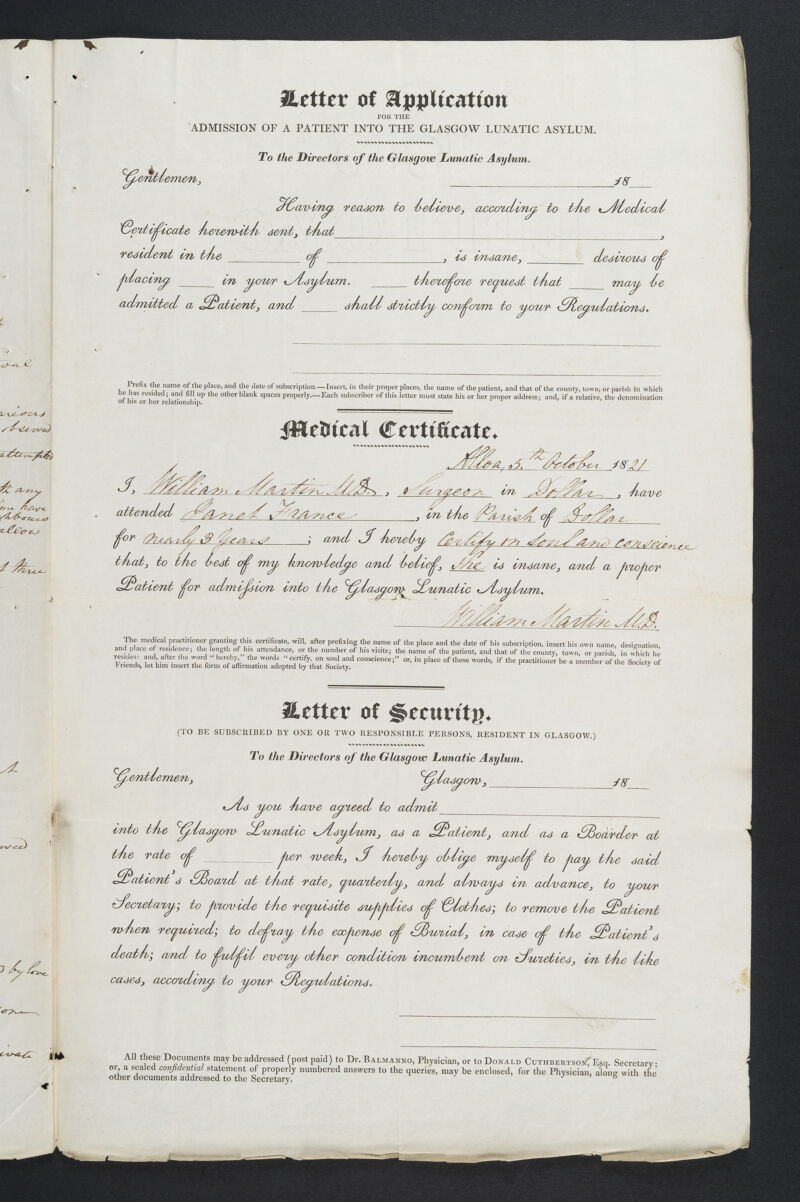 Letter of Application
FOR THE
ADMISSION OF A PATIENT INTO THE GLASGOW LUNATIC ASYLUM.
To the Directors of the Glasgow Lunatic Asylum.
Gentlemen, 18
Having reason to believe, according to the Medical
Certificate herewith sent, that ,
resident in the of , is insane, desirous of
placing in your Asylum. therefore request that may be
admitted a Patient, and shall strictly conform to your Regulations.
Prefix the name of the place, and the date of subscription.—Insert, in their proper places, the name of the patient, and that of the county, town, or parish in which
he has resided; and fill up the other blank spaces properly.—Each subscriber of this letter must state his or her proper address; and, if a relative, the denomination
of his or her relationship.
Medical Certificate.
Alloa, 5th October 1821
I, William Martin M.D., Surgeon in Dollar, have
attended Janet France, in the Parish of Dollar
for nearly 3 Years; and I hereby Certify on Soul and conscience
that, to the best of my knowledge and belief, She is insane, and a proper
Patient for admission into the Glasgow Lunatic Asylum.
William Martin M.D.
The medical practitioner granting this certificate, will, after prefixing the name of the place and the date of his subscription, insert his own name, designation,
and place of residence; the length of his attendance, or the number of his visits; the name of the patient, and that of the county, town, or parish, in which he
resides: and, after the word "hereby," the words "certify, on soul and conscience;" or, in place of these words, if the practitioner be a member of the Society of
Friends, let him insert the form of affirmation adopted by that Society.
Letter of Security.
(TO BE SUBSCRIBED BY ONE OR TWO RESPONSIBLE PERSONS, RESIDENT IN GLASGOW.)
To the Directors of the Glasgow Lunatic Asylum.
Gentlemen, Glasgow, 18
As you have agreed to admit
into the Glasgow Lunatic Asylum, as a Patient, and as a Boarder at
the rate of per week, I hereby oblige myself to pay the said
Patient's Board at that rate, quarterly, and always in advance, to your
Secretary; to provide the requisite supplies of Clothes; to remove the Patient
when required; to defray the expense of Burial, in case of the Patient's
death; and to fulfil every other condition incumbent on Sureties, in the like
cases, according to your Regulations.
All these Documents may be addressed (post paid) to Dr. BALMANNO, Physician, or to DONALD CUTHBERTSON, Esq. Secretary;
or, a sealed confidential statement of properly numbered answers to the queries, may be enclosed, for the Physician, along with the
other documents addressed to the Secretary.